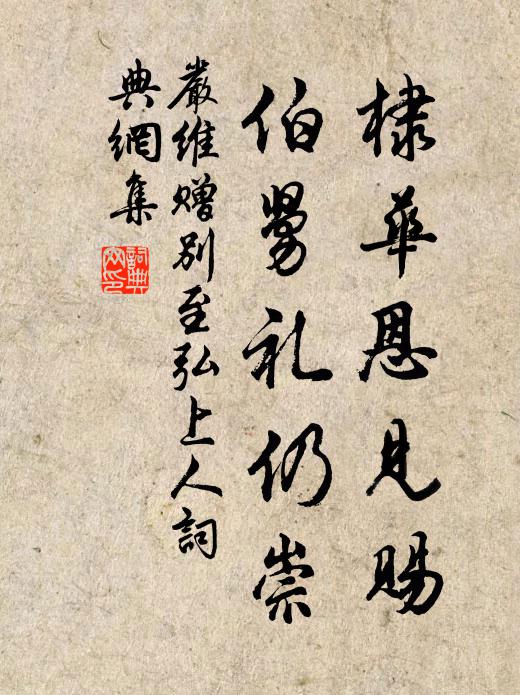 棣華恩見賜
伯舅礼仍崇
嚴維贈别至弘上人詞
典網集
詞典